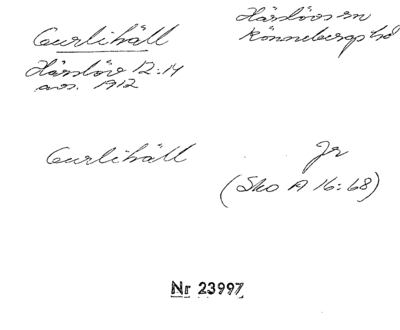 Curlihäll
Härslöv sn
Rönnebergs hd
Härslöv 12:14
avs. 1912
Curlihäll
Jr
(Sko A 16:68)
Nr 23997